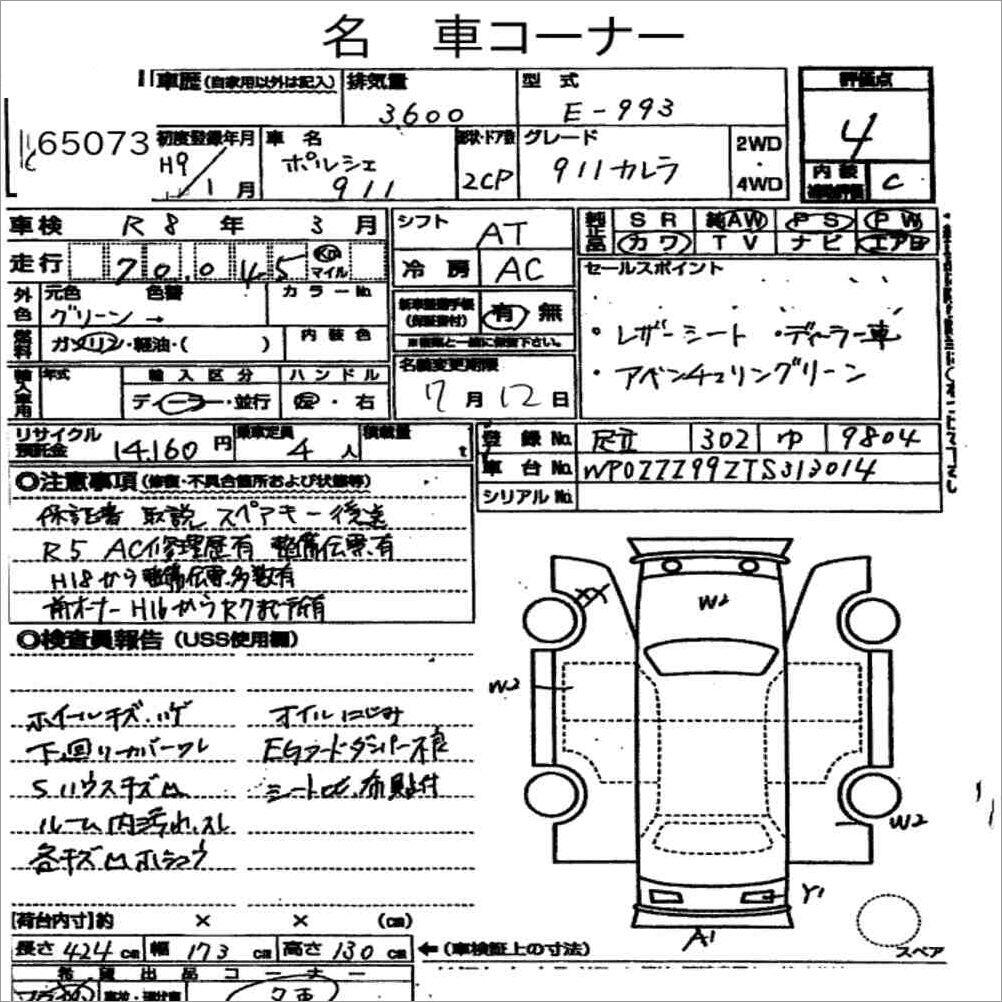 名 車コーナー
車歴 (自家用以外は記入) 排気量 3,600 型式 E-993 評価点 4
65073 初度登録年月 H9/1月 車名 ポルシェ 911 形状・ドア数 2CP グレード 911カレラ 2WD・4WD 内装 補助評価 C
車検 R8年 3月 シフト AT 純正品 SR 純AW PS PW
カワ TV ナビ エアB
走行 70,045 Km マイル 冷房 AC セールスポイント
外色 元色 グリーン → 色替 カラーNo. 新車整備手帳 (保証書付) 有 無
※車検と一緒に保管下さい。
・レザーシート ・ディーラー車
燃料 ガソリン・軽油・( ) 内装色
・アベンチュリングリーン
輸入車用 年式 輸入区分 ディーラー・並行 ハンドル 左・右 名義変更期限 7月12日
リサイクル預託金 14,160円 乗車定員 4人 積載量 t 登録No. 足立 302 ゆ 9804
車台No. WP0ZZZ99ZTS313014
シリアルNo.
◎注意事項 (修復・不具合箇所および状態等)
保証書 取説 スペアキー後送
R5 AC修理歴有 整備伝票有
H18から整備伝票多数有
前オーナーH16からR7まで所有
◎検査員報告 (USS使用欄)
ホイールキズ、ハゲ オイルにじみ
下回りカバーワレ EGフードダンパー不良
Sハウスキズ凹
ルーム内汚れ、スレ
各キズ凹ホシュウ
W2
W2
W2
Y1
A1
スペア
[荷台内寸]約 × × (cm)
長さ 424 cm 幅 173 cm 高さ 130 cm ←(車検証上の寸法)
希望出品コーナー